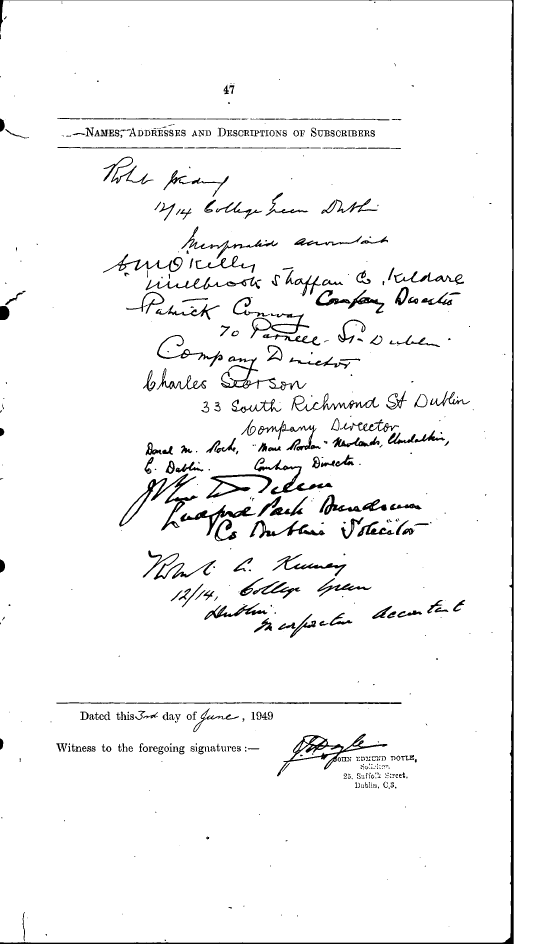 47
NAMES, ADDRESSES AND DESCRIPTIONS OF SUBSCRIBERS
12/14 College Green Dublin
Incorporated accountant
Millbrook Straffan Co. Kildare
Company Director
Patrick Conway
70 Parnell St. Dublin
Company Director
Charles
33 South Richmond St Dublin
Company Director
Donal M. Roche, Newlands, Clondalkin,
Co. Dublin. Company Director.
Park Dundrum
Co Dublin Solicitor
12/14, College Green
Dublin.
Incorporated Accountant
Dated this 3rd day of June, 1949
Witness to the foregoing signatures :—
JOHN EDMUND DOYLE,
Solicitor,
25, Suffolk Street,
Dublin, C.3.